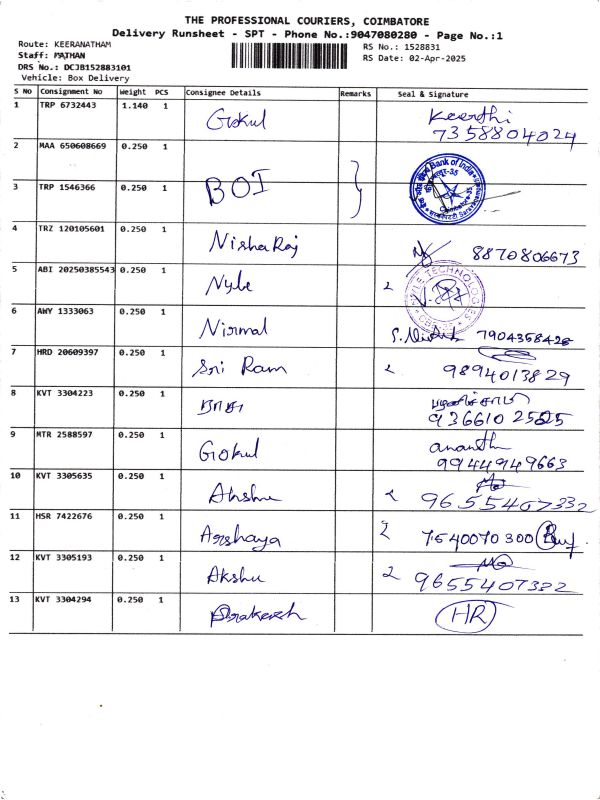 THE PROFESSIONAL COURIERS, COIMBATORE
Delivery Runsheet - SPT - Phone No.:9047080280 - Page No.:1
Route: KEERANATHAM
RS No.: 1528831
Staff: MATHAN
RS Date: 02-Apr-2025
DRS No.: DCJB152883101
Vehicle: Box Delivery
S No Consignment No Weight PCS Consignee Details Remarks Seal & Signature
1 TRP 6732443 1.140 1 Gokul Keerthi
7358804029
2 MAA 650608669 0.250 1
3 TRP 1546366 0.250 1 BOI Bank of India
4 TRZ 120105601 0.250 1 Nisha Raj 8870806673
5 ABI 20250385543 0.250 1 Nyle TECHNOLOGIES
6 AWY 1333063 0.250 1 Nirmal 7904358428
7 HRD 20609397 0.250 1 Sri Ram 9894013829
8 KVT 3304223 0.250 1
9 MTR 2588597 0.250 1 Gokul ananth
9944949663
10 KVT 3305635 0.250 1 Akshu 9655407332
11 HSR 7422676 0.250 1 Arshaya 7540070300
12 KVT 3305193 0.250 1 Akshu 9655407332
13 KVT 3304294 0.250 1 Prakash HR